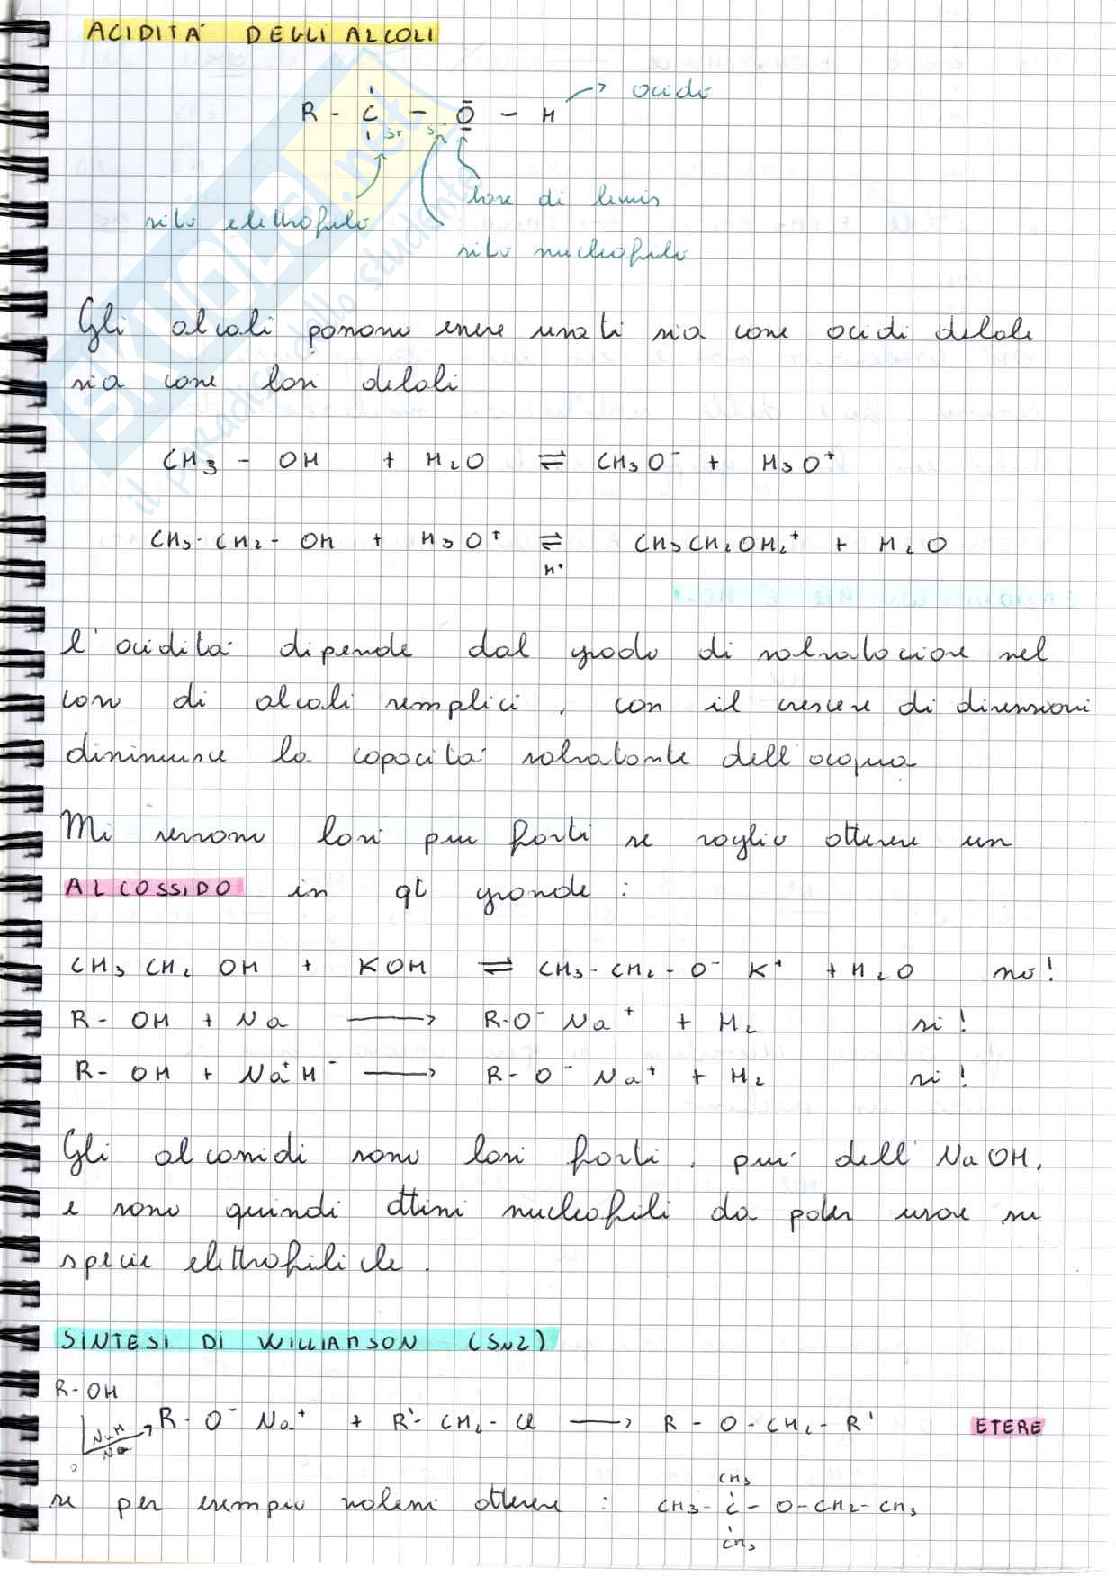 ACIDITA' DEGLI ALCOLI
R - C - O - H → acido
δ+ δ-
base di lewis
sito elettrofilo
sito nucleofilo
Gli alcoli possono essere usati sia come acidi deboli
sia come basi deboli
CH3 - OH + H2O ⇌ CH3O- + H3O+
CH3-CH2-OH + H3O+ ⇌ CH3CH2OH2+ + H2O
H+
L'acidità dipende dal grado di solvatazione nel
caso di alcoli semplici, con il crescere di dimensioni
diminuisce la capacità solvatante dell'acqua
Mi servono basi più forti se voglio ottenere un
ALCOSSIDO in qt grande:
CH3CH2OH + KOH ⇌ CH3-CH2-O- K+ + H2O no!
R-OH + Na → R-O- Na+ + H2 si!
R-OH + Na+H- → R-O- Na+ + H2 si!
Gli alcossidi sono basi forti, più dell'NaOH,
e sono quindi ottimi nucleofili da poter usare su
specie elettrofiliche.
SINTESI DI WILLIAMSON (SN2)
R-OH
NaH
Na
R-O- Na+ + R'-CH2-Cl → R-O-CH2-R' ETERE
CH3
se per esempio volessi ottenere: CH3-C-O-CH2-CH3
CH3
SKUOLA.net
il paradiso dello studente